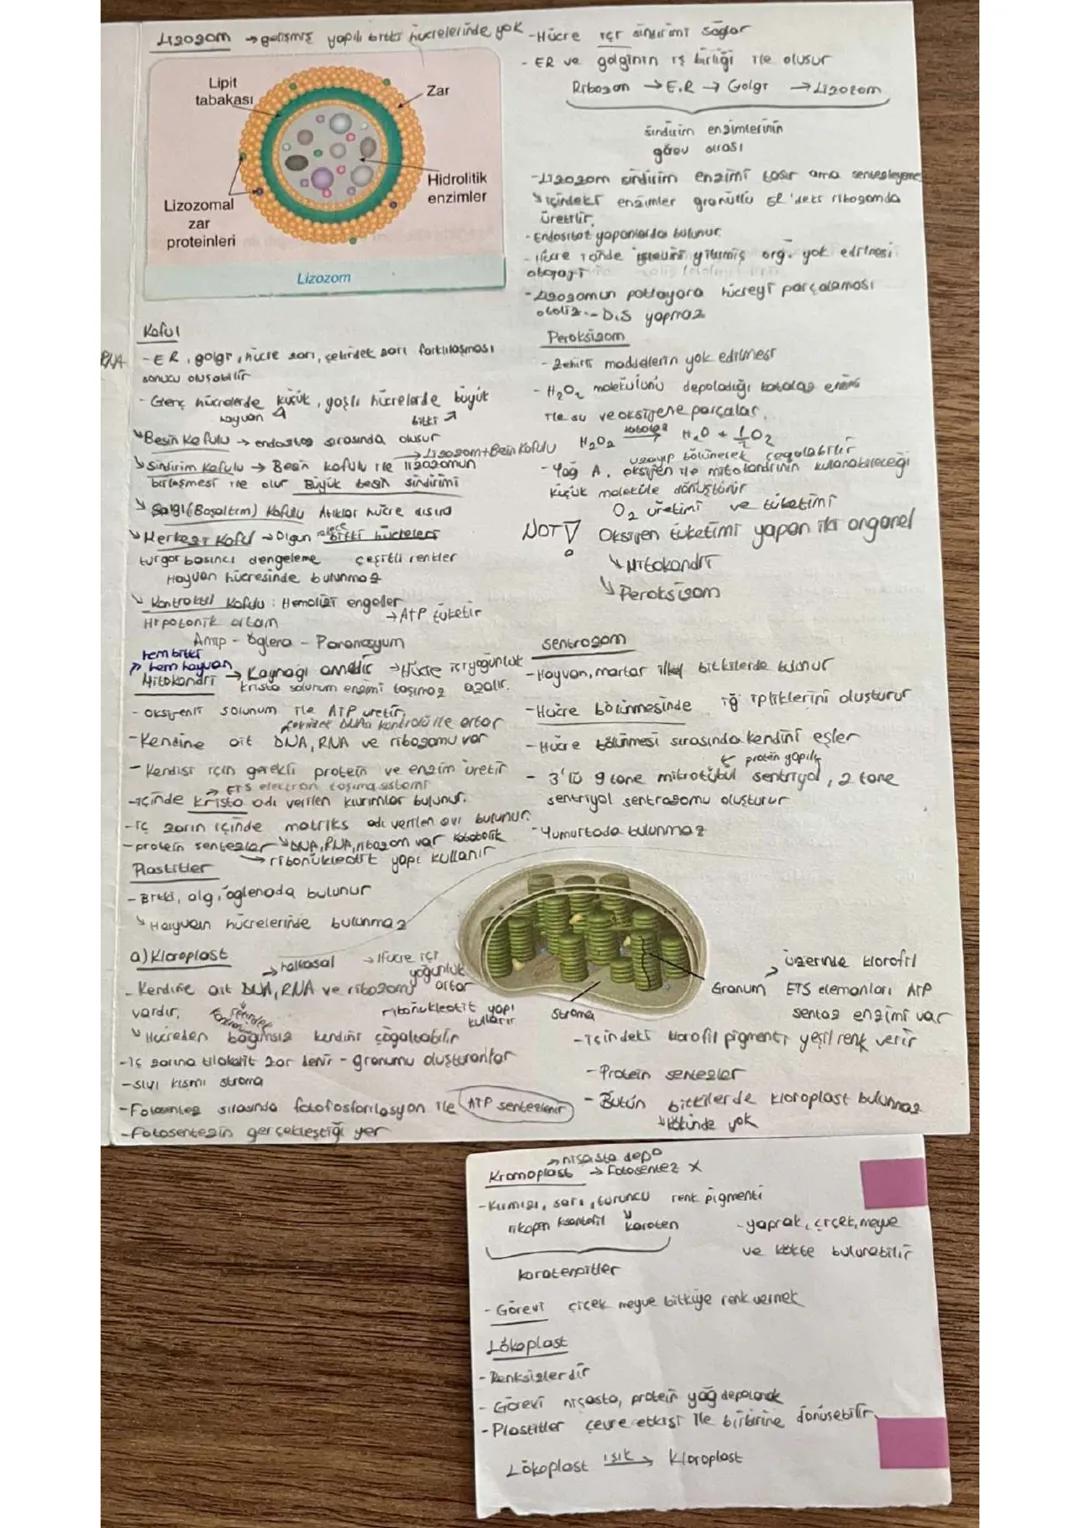 Lizozom → gelişmiş yapılı bitki hücrelerinde yok
Lipit tabakası
Zar
Hidrolitik enzimler
Lizozomal zar proteinleri
Lizozom
- Hücre içi sindirimi sağlar
- ER ve golginin iş birliği ile oluşur
Ribozom → E.R → Golgi → Lizozom
sindirim enzimlerinin
görev sırası
- Lizozom sindirim enzimi taşır ama sentezleyemez
↳ içindeki enzimler granüllü ER'deki ribozomda
üretilir.
- Endositoz yapanlarda bulunur.
- Hücre içinde işlevini yitirmiş org. yok edilmesi
otofaji
- Lizozomun patlayara hücreyi parçalaması
otoliz -- D.S yapmaz
Koful
RNA
- ER, golgi, hücre zarı, çekirdek zarı farklılaşması
sonucu oluşabilir
- Genç hücrelerde küçük, yaşlı hücrelerde büyük
hayvan bitki
↳ Besin Kofulu → endositoz sırasında oluşur
→ Lizozom + Besin Kofulu
↳ Sindirim Kofulu → Besin kofulu ile lizozomun
birleşmesi ile olur Büyük besin sindirimi
↳ Salgı (Boşaltım) Kofulu Atıklar hücre dışına
↳ Merkezi Koful → Olgun bitki hücreleri
turgor basıncı dengeleme çeşitli renkler
Hayvan hücresinde bulunmaz
↳ Kontraktil Kofulu : Hemolizi engeller
Hipotonik ortam → ATP tüketir
Amip - Öglena - Paramesyum
Peroksizom
- Zehirli maddelerin yok edilmesi
- H₂O₂ molekülünü depoladığı katalaz enzimi
ile su ve oksijene parçalar.
H₂O₂ katalaz → H₂O + ½O₂
uzayıp bölünerek çoğalabilir
- Yağ A. oksijen ile mitokondrinin kullanabileceği
küçük moleküle dönüştürür
O₂ üretimi ve tüketimi
NOT! Oksijen tüketimi yapan iki organel
↳ Mitokondri
↳ Peroksizom
hem bitki
hem hayvan
Mitokondri → Kaynağı annedir → Hücre içi yoğunluk
krista solunum enzimi taşımaz azalır.
- Oksijenli solunum ile ATP üretir.
çekirdek DNA kontrolü ile artar
- Kendine ait DNA, RNA ve ribozomu var
- Kendisi için gerekli protein ve enzim üretir
→ ETS elektron taşıma sistemi
- içinde krista adı verilen kıvrımlar bulunur.
- iç zarın içinde matriks adı verilen sıvı bulunur.
- protein sentezler ↳ DNA, RNA, ribozom var katabolik
→ ribonükleotit yapı kullanır
Sentrozom
- Hayvan, mantar ilkel bitkilerde bulunur
- Hücre bölünmesinde iğ ipliklerini oluşturur
- Hücre bölünmesi sırasında kendini eşler
protein yapılı
- 3'lü 9 tane mikrotübül sentriyol, 2 tane
sentriyol sentrozomu oluşturur
- Yumurtada bulunmaz
Plastitler
- Bitki, alg, öglenada bulunur
↳ Hayvan hücrelerinde bulunmaz
a) Kloroplast
→ halkasal → Hücre içi
yoğunluk
artar
- Kendine ait DNA, RNA ve ribozomu
vardır. ribonükleotit yapı
kullanır
↳ Hücreden bağımsız kendini çoğaltabilir
- İç zarına tilakoit zar denir - granumu oluştururlar
- sıvı kısmı stroma
- Fotosentez sırasında fotofosforilasyon ile ATP sentezlenir
- Fotosentezin gerçekleştiği yer
Stroma
Granum
→ üzerinde klorofil
ETS elemanları ATP
sentaz enzimi var
- İçindeki klorofil pigmenti yeşil renk verir
- Protein sentezler
- Bütün bitkilerde kloroplast bulunmaz
↳ kökünde yok
→ nişasta depo
Kromoplast → Fotosentez X
- Kırmızı, sarı, turuncu renk pigmenti
likopen ksantofil karoten
Karotenoitler
- yaprak, çiçek, meyve
ve kökte bulunabilir
- Görevi çiçek meyve bitkiye renk vermek
Lökoplast
- Renksizlerdir
- Görevi nişasta, protein yağ depolamak
- Plastitler çevre etkisi ile birbirine dönüşebilir.
Lökoplast ışık → Kloroplast